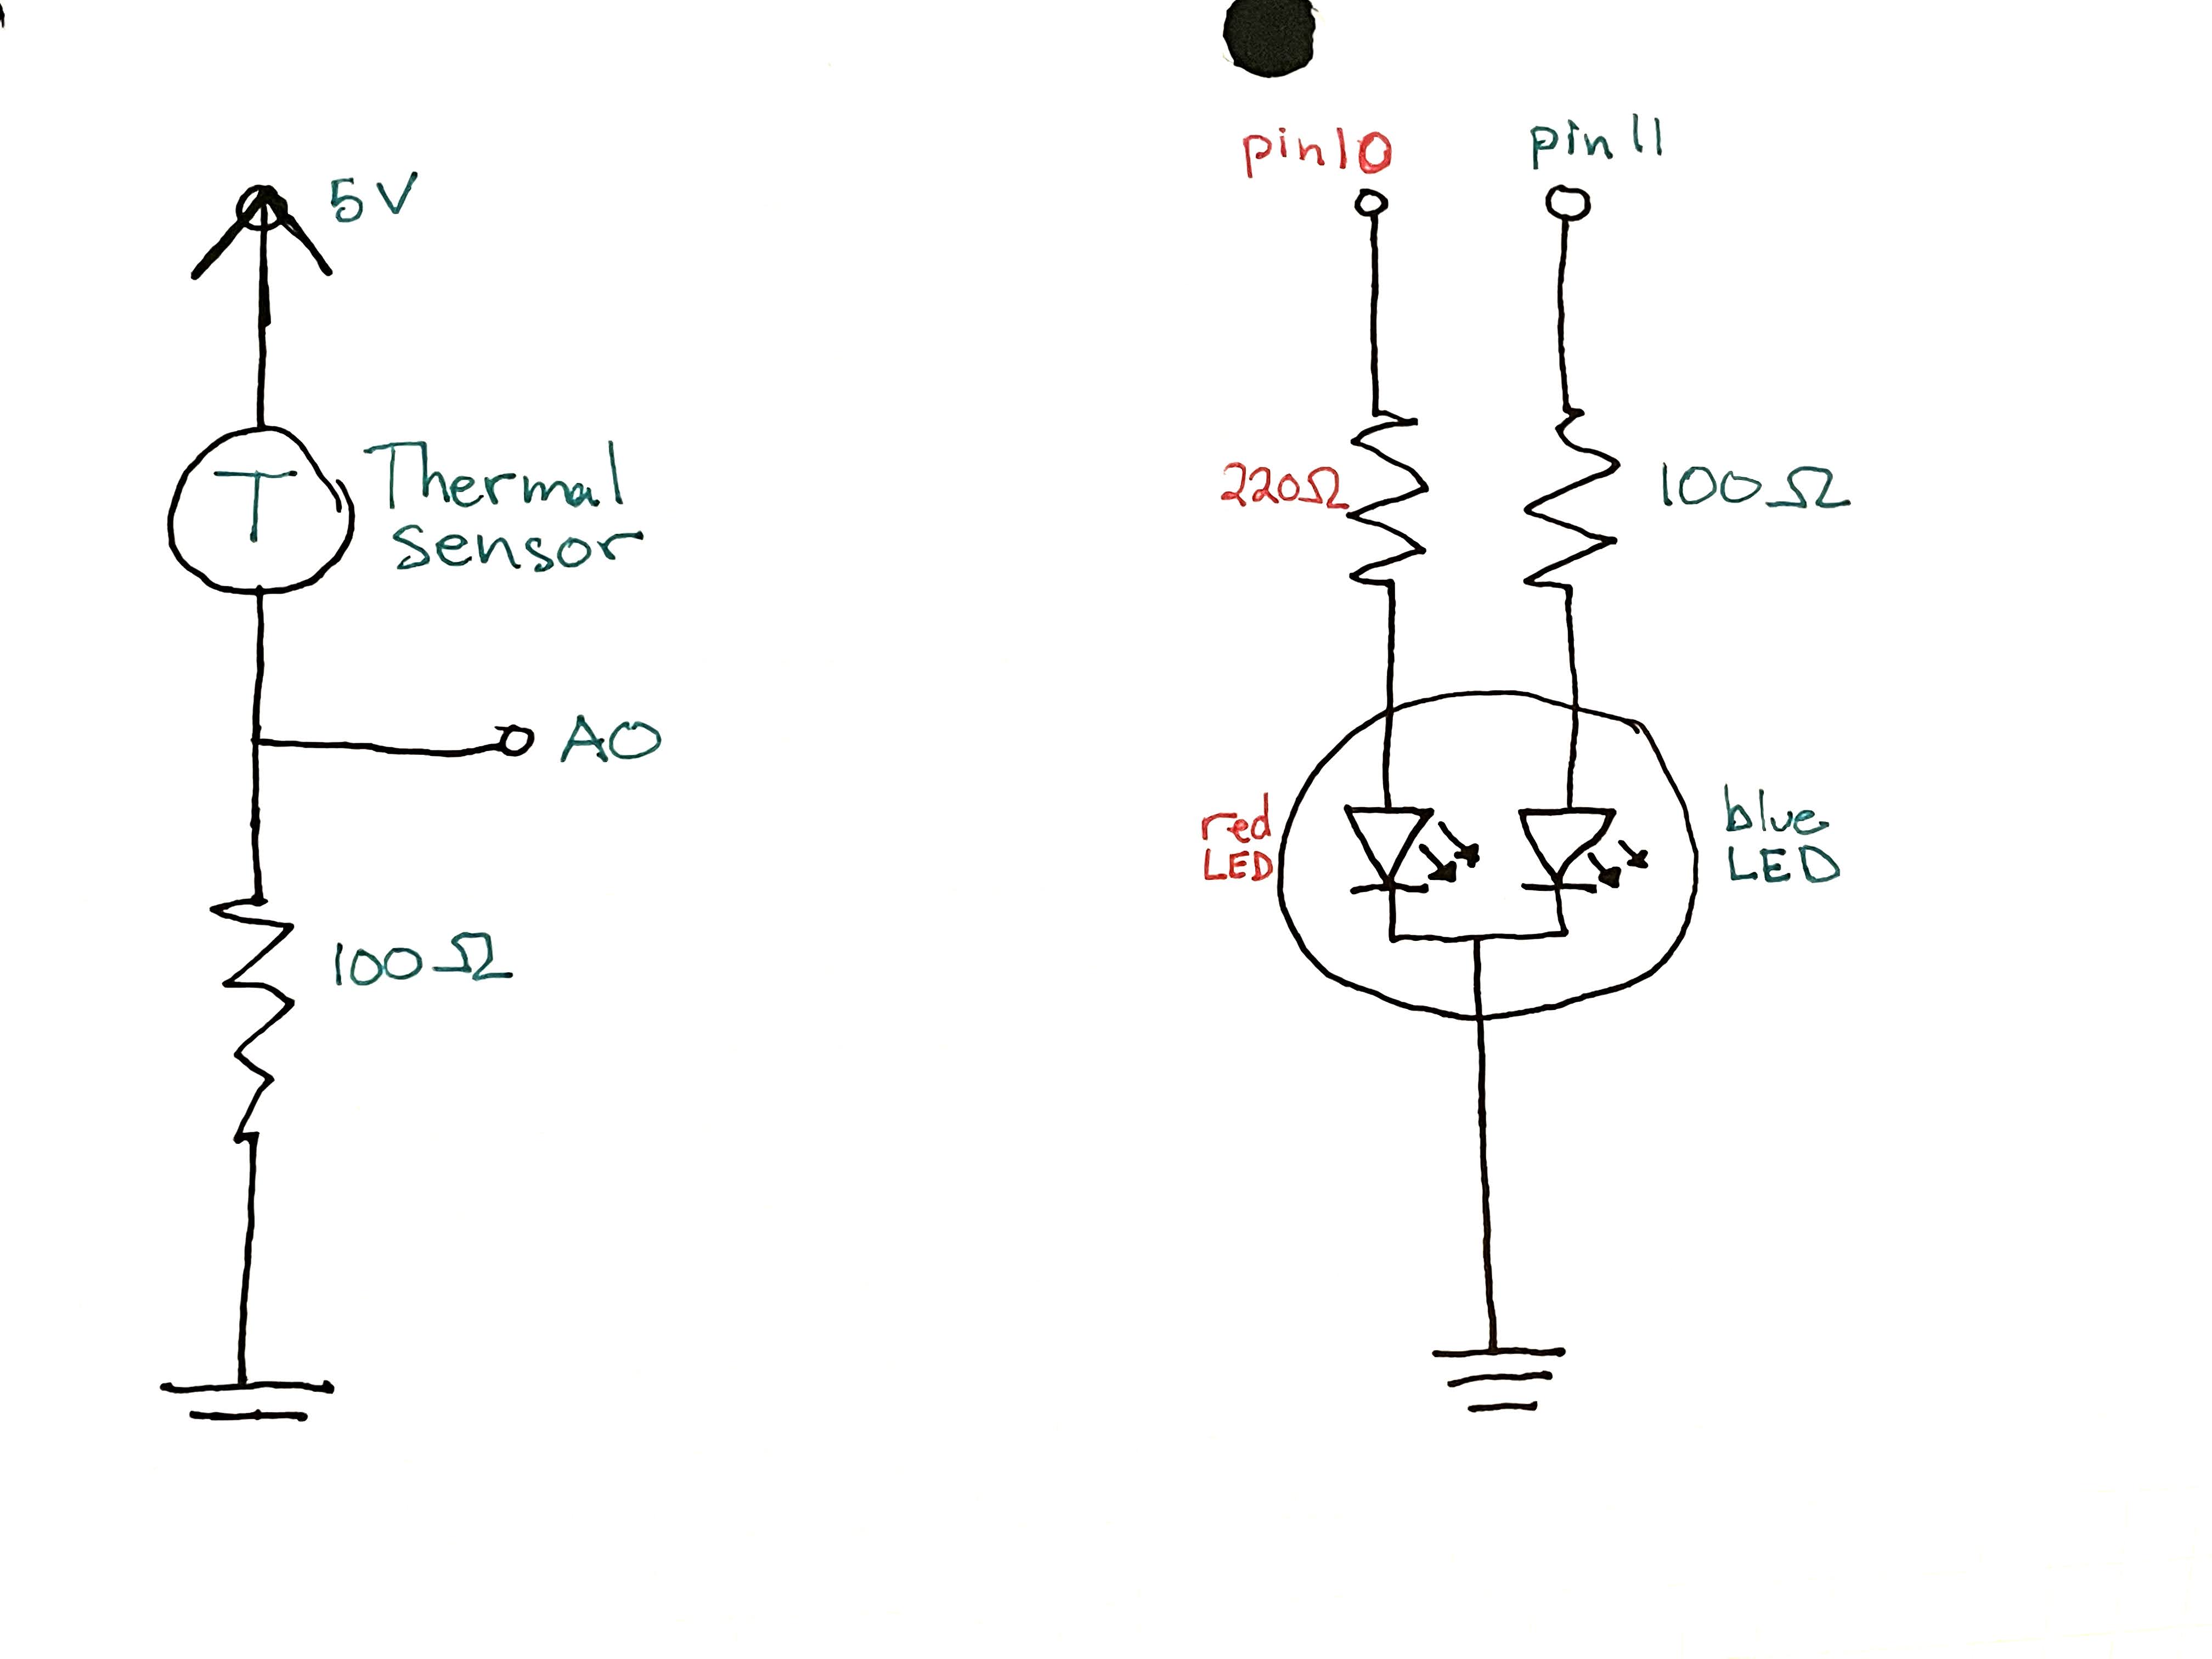 5V
T
Thermal
sensor
AO
100Ω
pin10
pin11
220Ω
100Ω
red
LED
blue
LED